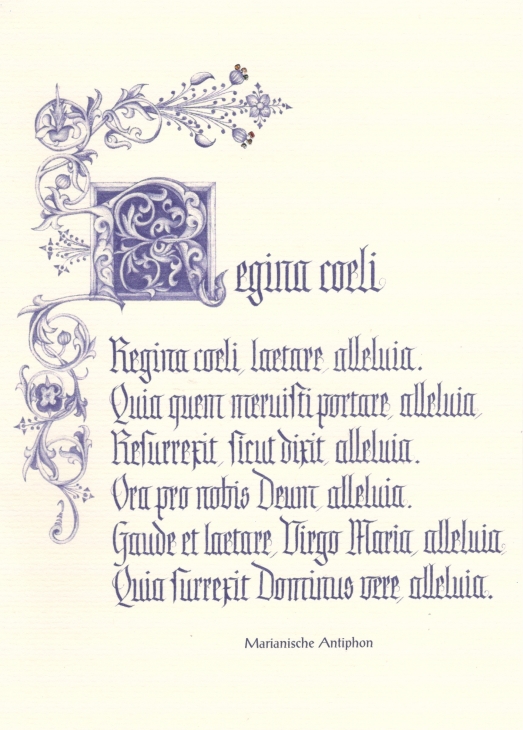 Regina coeli
Regina coeli, laetare, alleluia.
Quia quem meruisti portare, alleluia,
Resurrexit, sicut dixit, alleluia.
Ora pro nobis Deum, alleluia.
Gaude et laetare, Virgo Maria, alleluia,
Quia surrexit Dominus vere, alleluia.
Marianische Antiphon